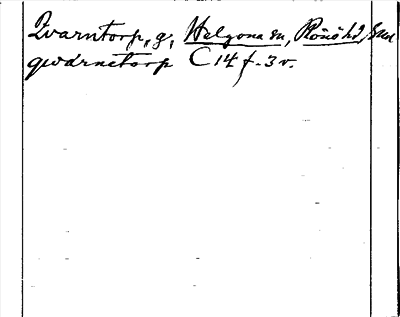 Qvarntorp, g, Helgona sn, Rönö hd, Sml
qwdrnetorp C 14 f. 3 v.